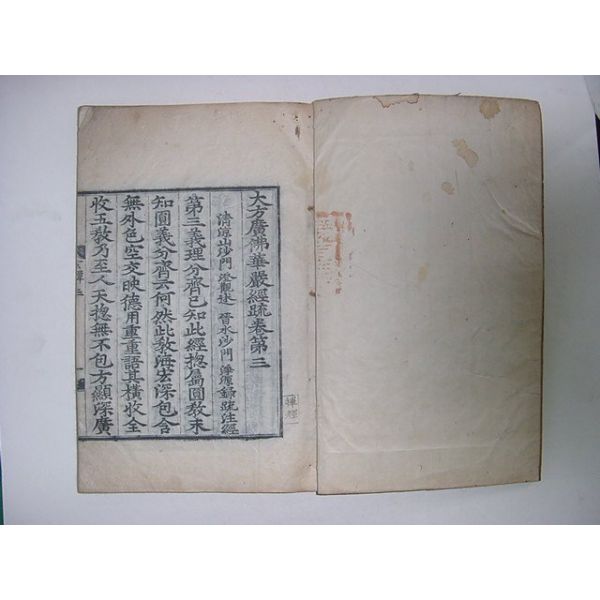 大方廣佛華嚴經疏卷第三
清涼山沙門 澄觀述 晉水沙門 淨源錄疏注經
第三義理分齊已知此經揔屬圓教未
知圓義分齊云何然此教海宏深包含
無外色空交映德用重重語其橫收全
收五教乃至人天揔無不包方顯深廣